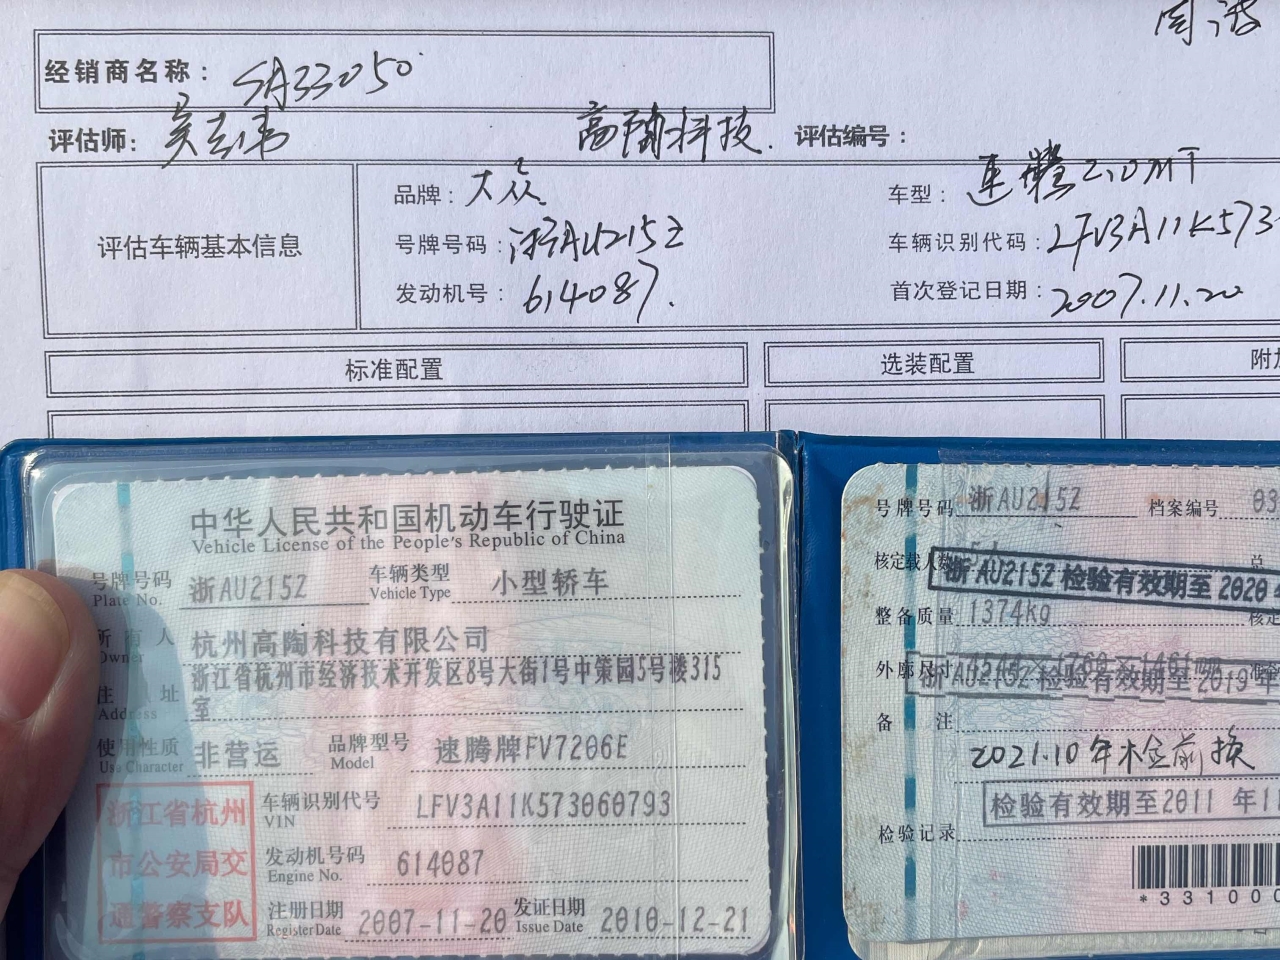 周波
经销商名称：SA33050
评估师：吴云伟 高陶科技. 评估编号：
评估车辆基本信息
品牌：大众 车型：速腾2.0MT
号牌号码：浙AU215Z 车辆识别代码：LFV3A11K573
发动机号：614087. 首次登记日期：2007.11.20
标准配置 选装配置 附加
中华人民共和国机动车行驶证
Vehicle License of the People's Republic of China
号牌号码 浙AU215Z 车辆类型 小型轿车
Plate No. Vehicle Type
所有人 杭州高陶科技有限公司
Owner
住址 浙江省杭州市经济技术开发区8号大街1号中策园5号楼315
室
Address
使用性质 非营运 品牌型号 速腾牌FV7206E
Use Character Model
浙江省杭州
市公安局交
通警察支队
车辆识别代号 LFV3A11K573060793
VIN
发动机号码 614087
Engine No.
注册日期 2007-11-20 发证日期 2010-12-21
Register Date Issue Date
号牌号码 浙AU215Z 档案编号 03
核定载人数 5人 总
浙AU215Z 检验有效期至 2020
整备质量 1374kg 核定
外廓尺寸 4544×1760×1461mm 准
浙AU215Z 检验有效期至 2019年
备注
2021.10年检金前换
检验有效期至2011 年11
检验记录
*331000